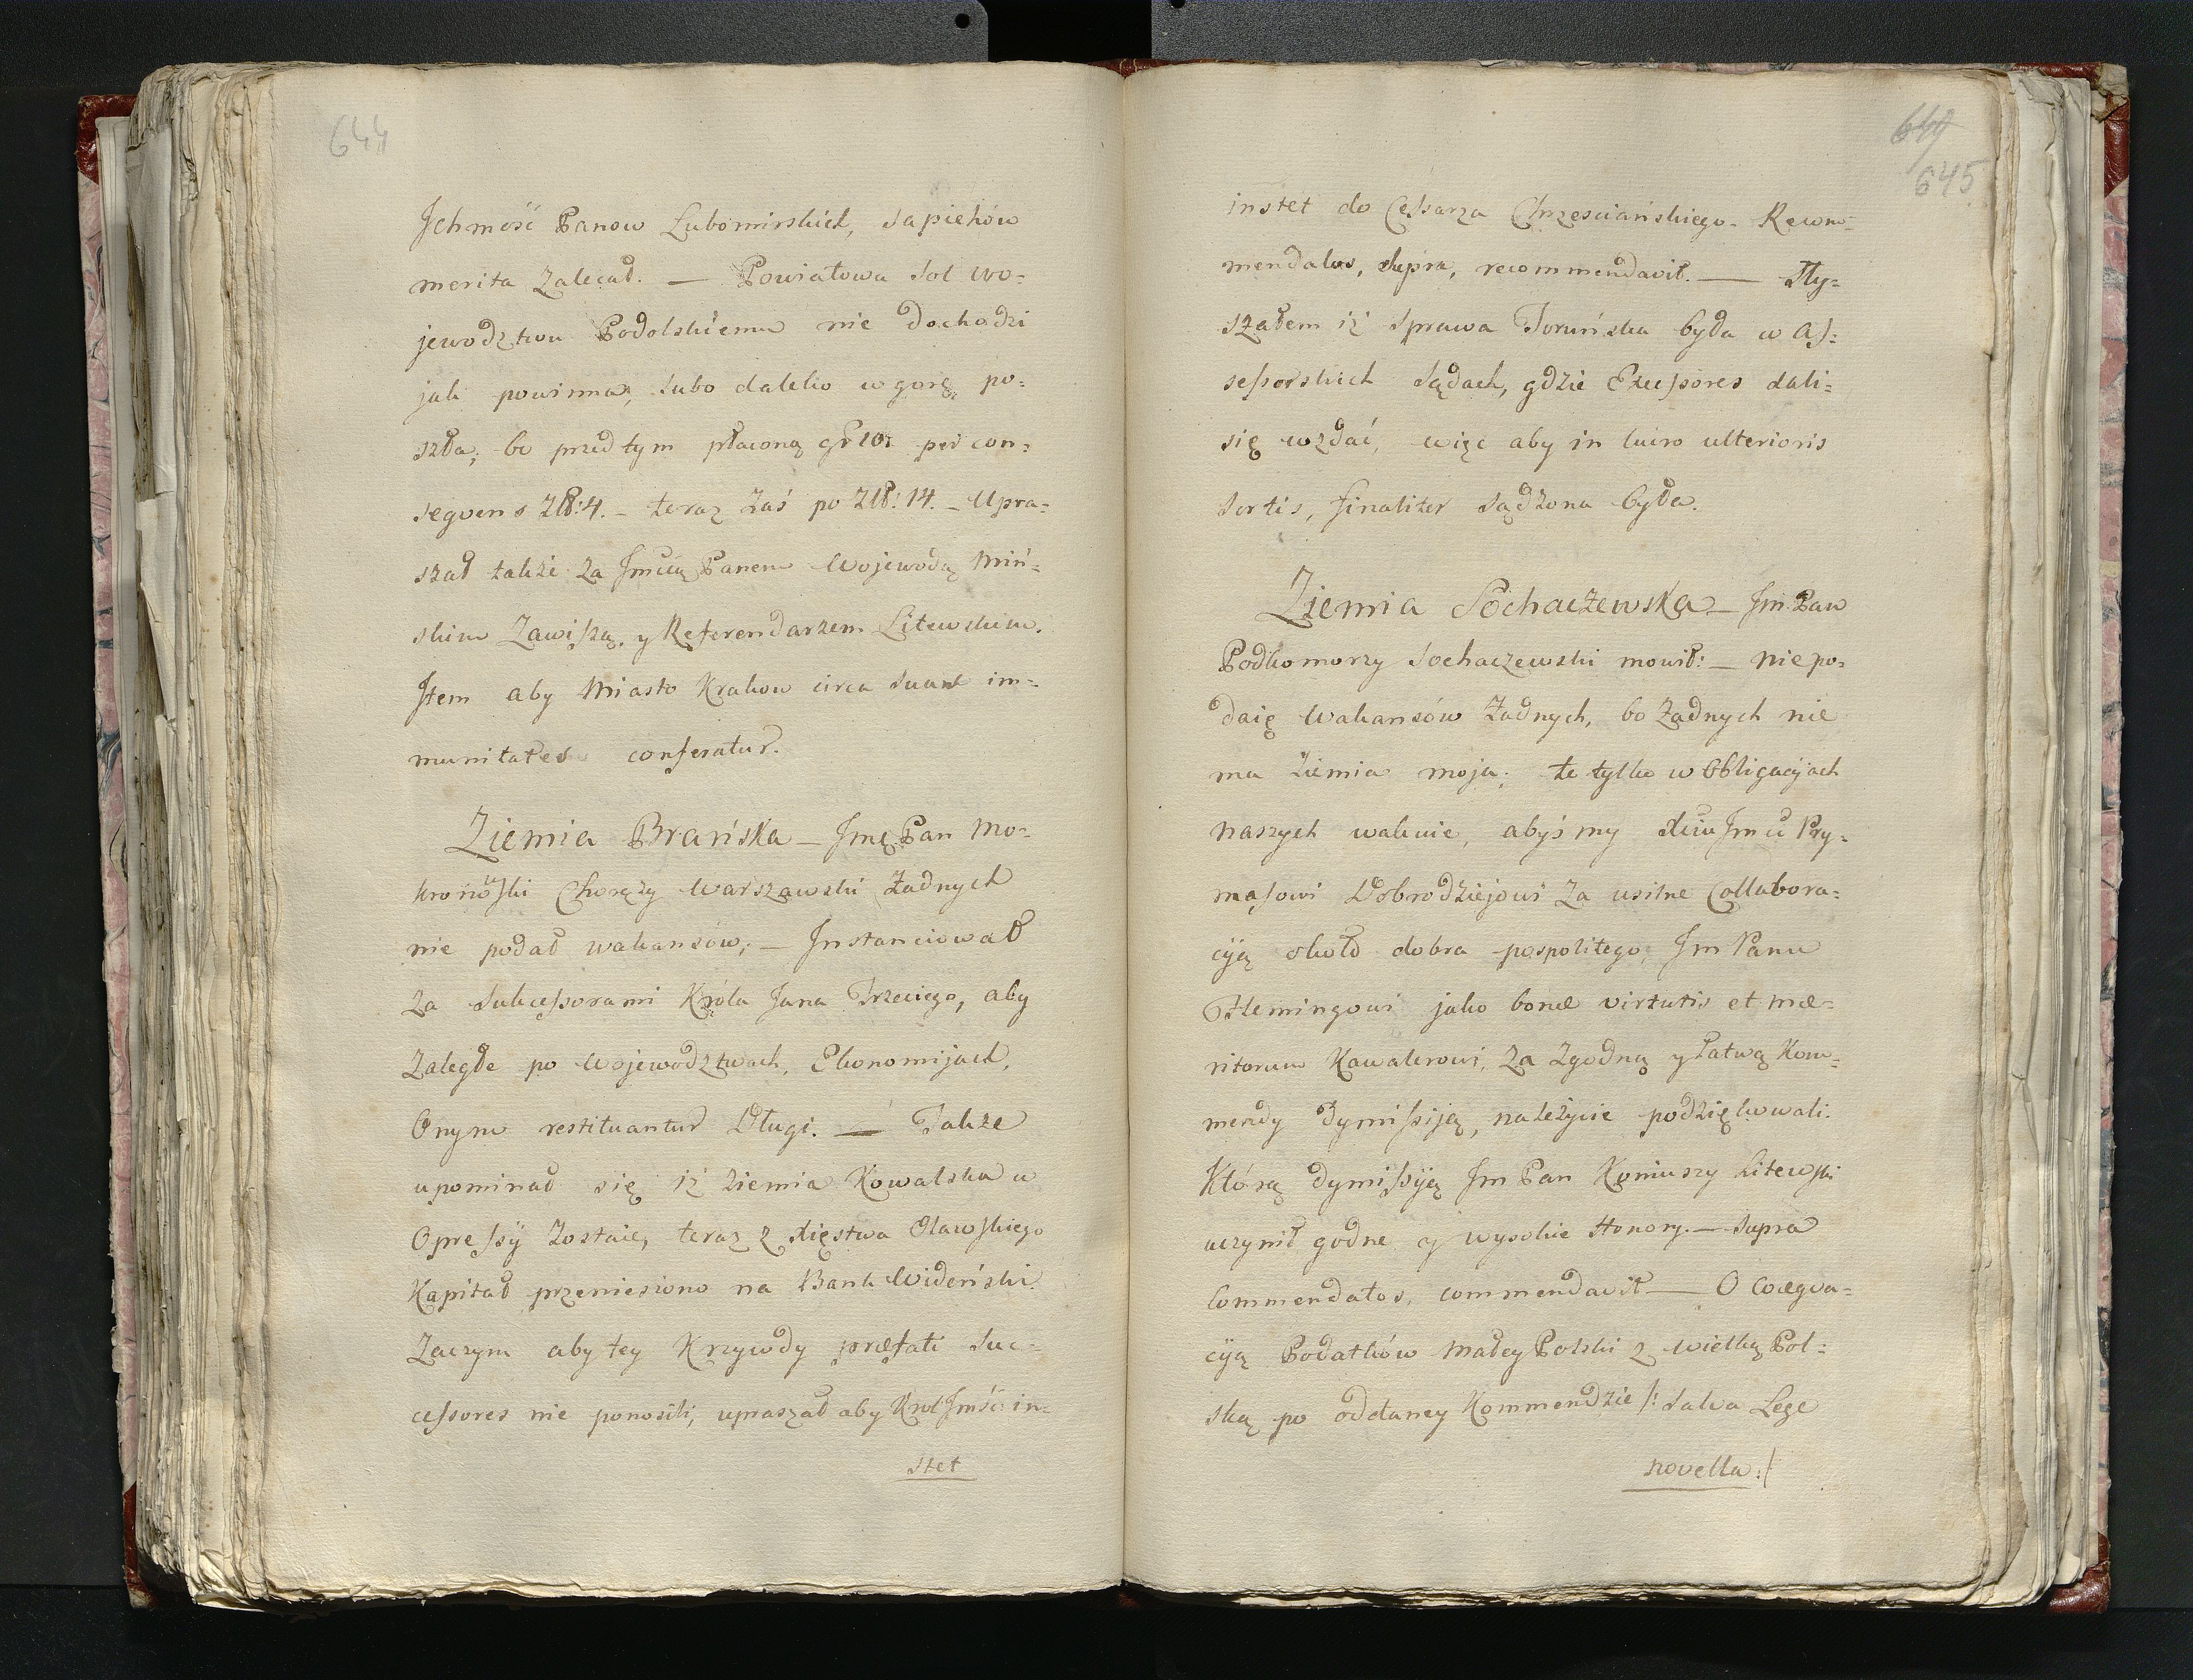 644
Jchmość Panow Lubomirskich, Sapiehów
merita Zalecał. — Powiatowa Sol wo=
jewodztwu Podolskiemu nie dochodzi
jak powinna, lubo daleko w gorę po=
szła; bo przed tym płaconą gr 10. per con=
seqvens Złł: 4. – teraz Zaś po Złł: 14. – Upra=
szał także za Jmcią Panem Wojewodą Miń=
skim Zawiszą, y Referendarzem Litewskim.
Jtem aby Miasto Krakow circa suas im=
munitates conferatur.
Ziemia Brańska — Jmę Pan Mo=
kronowski Chorąży Warszawski Żadnych
nie podał wakansów; — Jnstanciował
Za Sukcessorami Króla Jana Trzeciego, aby
Zaległe po Wojewodztwach, Ekonomijach,
Onym restituantur Długi. — Także
upominał się iż Ziemia Kowalska w
Opressÿ Zostaie, teraz z Xięstwa Oławskiego
Kapitał przeniesiono na Bank Wideński.
Zaczym aby tey Krzywdy præfati Suc=
cessores nie ponosili, upraszał aby Krol Jmść in=
stet
645
instet do Cesarza Chrzesciańskiego. Recom=
mendatos, supra, recommendavit. — Sły=
szałem iż Sprawa Toruńska była w As=
sessorskich Sądach, gdzie Excessores dali=
się wzdać, więc aby in lucro ulterioris
Sortis, finaliter Sądzona była.
Ziemia Sochaczewska — Jm. Pan
Podkomorzy Sochaczewski mowił: — Nie po=
daię Wakansów Żadnych, bo Żadnych nie
ma Ziemia moja; te tylko w Obligacyjach
naszych wakuie, abyśmy Xciu Jmci Pry=
masowi Dobrodziejowi Za usilne Collabora=
cyą około dobra pospolitego, Jm Panu
Flemingowi jako bonæ virtutis et me=
ritorum Kawalerowi, Za Zgodną y Łatwą Kom=
mendy dymissiją, należycie podziękowali.
Którą dymissyją Jm Pan Koniuszy Litewski
uczynił godne y wysokie Honory. — Supra
Commendatos, commendavit — O Coæqva=
cyą Podatków Małey Polski z Wielką Pol=
ską po oddaney Kommendzie /: Salva Lege
novella :/